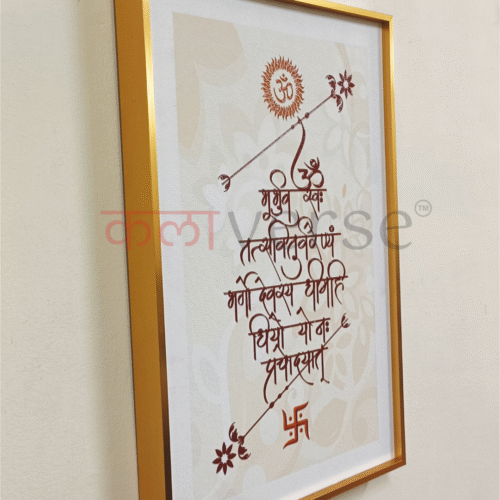 ॐ
ॐ
भूर्भुव स्वः
तत्सवितुर्वरेण्यं
भर्गो देवस्य धीमहि
धियो यो नः
प्रचोदयात्
कलाverse™